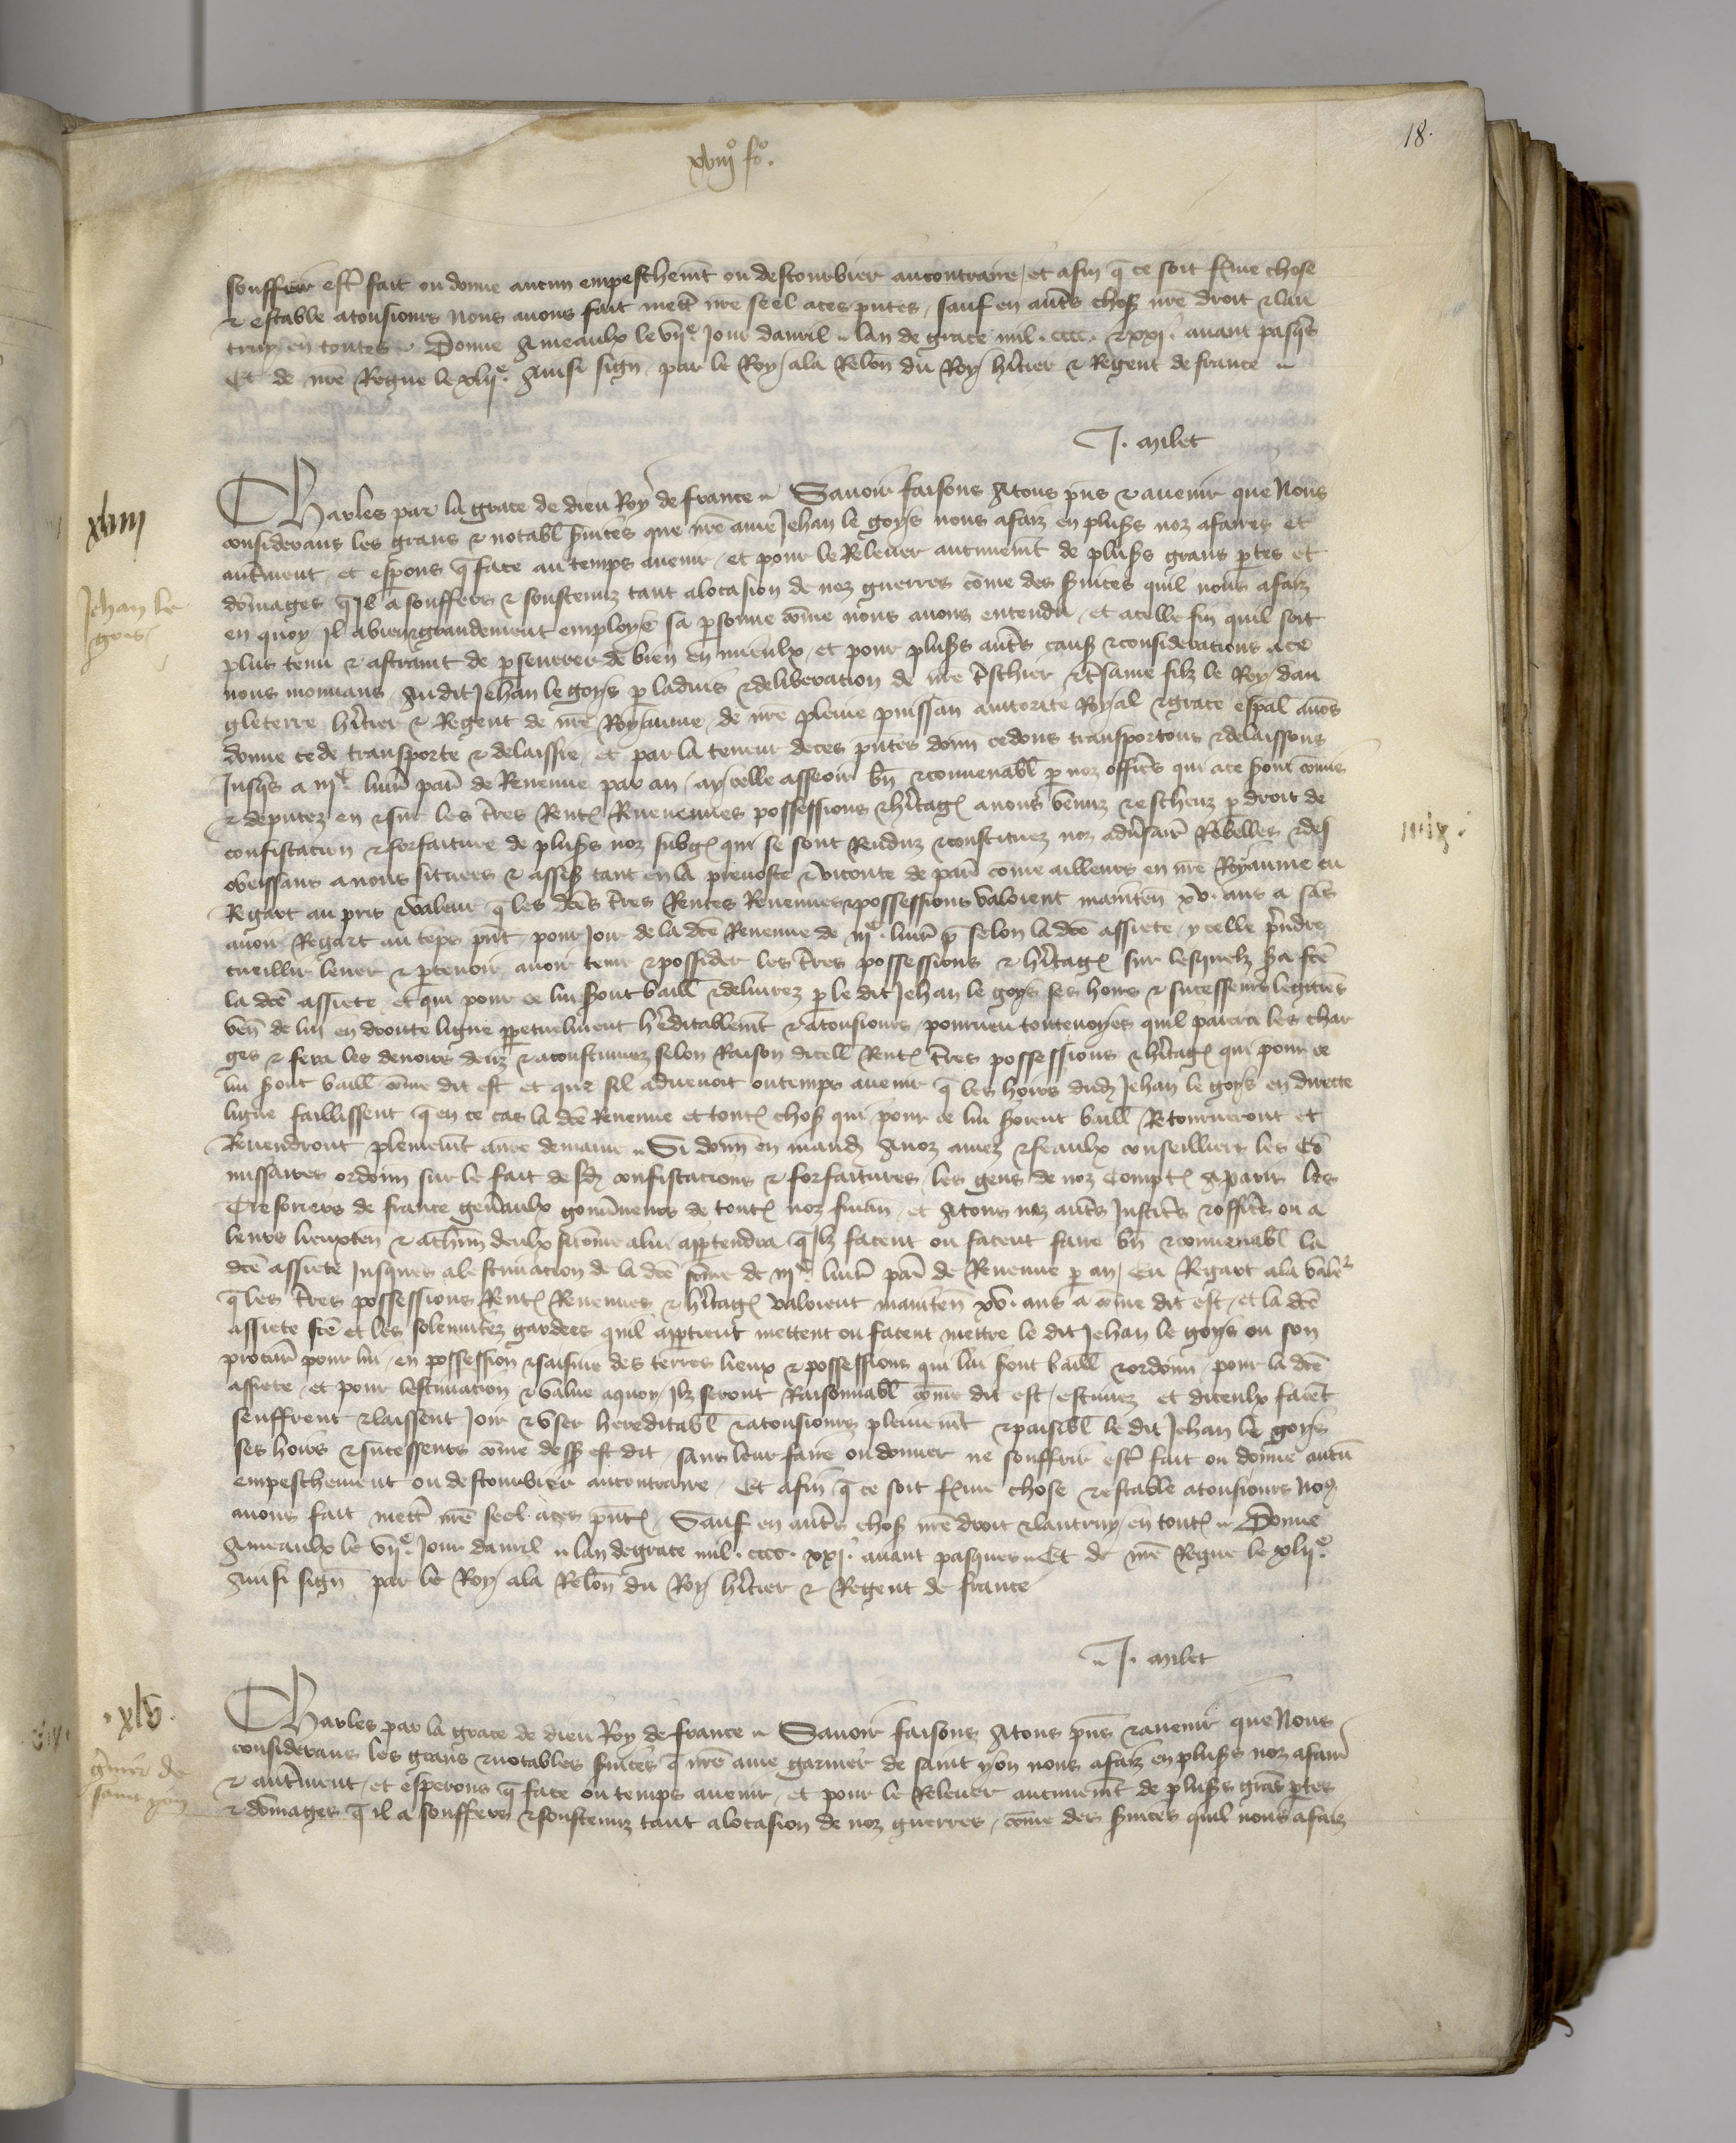 xviijº fº.
18.
souffrir estre fait ou donne aucun empeschemt ou destourbier aucontraire / et afin q̄ ce soit ferme chose
& estable atousiours nous auons fait mettr̄ nr̄e seel aces pn̄tes / sauf en autr̄s chos̄ nr̄e droit & lau
truy en toutes Donne Ameaulx le vijᵉ Jour dauril lan de grace mil . cccc . & xxj . auant pasqs̄
Et de nr̄e Regne le xlijᵉ. Ainsi sign̄ . par le Roy / ala Relōn du Roy hēritier & Regent de france
J. milet
xliiij
Jehan le
gois
Charles par la grace de dieu Roy de france Sauoir faisons Atous pn̄s & auenir que Nous
considerans les grans & notabl̄ suices que nr̄e ame Jehan le goys nous afaiz en pluss̄ noz afaires et
autr̄ment / et esp̄ons q̄ face au temps auenir / et pour le Releuer aucunemt̄ de pluss̄ grans pertes et
dōmages q̄ Il a souffers & soustenuz tant alocasion de noz guerres cōme des suices quil nous afaiz
en quoy Il abien & grandement employe sa psonne cōme nous auons entendu / et acelle fin quil soit
plus tenu & astraint de pseuerer de bien en mieulx / et pour pluss̄ autr̄s caus̄ & consideracions ace
nous mouuans Audit Jehan le goys p laduis & deliberacion de nr̄e tr̄schier & tr̄same filz le Roy dan
gleterre hēritier & Regent de nr̄e Royaume / de nr̄e pleine puissan auctorite Royal & grace esp̄al auōs
donne cede transporte & delaissie / et par la teneur de ces pn̄tes donn̄ cedons transportons & delaissons
Jusqs̄ a iijᶜ liur̄ par̄ de Reuenue par an / aycelle asseoir bn̄ & conuenabl̄ p noz officrs̄ qui ace sont cōmis
& deputez en & sur les tr̄res Rentes Reuenues possessions & hēritages anous venuz & escheuz p droit de
confiscacion & forfaiture de pluss̄ noz subges qui se sont Renduz & constituez noz aduersair̄ Rebelles & des
obeissans anous situees & assis̄ tant en la preuoste & viconte de par̄ cōme ailleurs en nr̄e Royaume eu
iiijˣ .
Regart au pris & valeur q̄ les dc̄es tr̄res Rentes Reuenues & possessions valoient mainten̄ xv . ans a sās
auoir Regart au tēps pn̄t / pour Joir de la dc̄e Reuenue de iijᶜ liur̄ p̄ selon la dc̄e assiete / ycelle prendre
cueillir leuer & perceuoir auoir tenir & possider les tr̄res possessions & hēritages sur lesquelz sera fc̄e
la dc̄e assiete / et qui pour ce lui seront baill̄ & deliurez p le dit Jehan le goys ses hoirs & successeurs legitim̄es
ven̄ de lui en droite ligne ppetuelment hēreditablemt̄ & atousiours / pourueu touteuoyes quil paiera les char
ges & fera les deuoirs deuz & acoustumez selon Raison dicell̄ Rentes tr̄res possessions & hēritages qui pour ce
lui seront baill̄ cōme dit est et que sil aduenoit ou temps auenir q̄ les hoirs dud Jehan le goys en directe
ligne faillissent q̄ en ce cas la dc̄e Reuenue et toutes chos̄ qui pour ce lui seroient baill̄ Retourneront et
Reuendront plenemt̄ anr̄e demaine Si donn̄ en mand Anoz amez & feaulx conseilliers les Cō
missaires ordonn̄ sur le fait des confiscacions & forfaitures / les gens de noz Comptes Aparis les
Tresoriers de france gen̄aulx gouuerneurs de toutes noz finan̄ / et Atous noz autr̄s Justicrs̄ & officrs̄ ou a
leurs lieuxten̄ & a chūn deulx si cōme alui appartendra q̄ Ilz facent ou facent faire bn̄ & conuenabl̄ la
dc̄e assiete Jusques alestimacion de la dc̄e sōme de iijᶜ liur̄ par̄ de Reuenue p an / Eu Regart ala valeʳ
q̄ les tr̄res possessions Rentes Reuenues & hēritages valoient mainten̄ xv . ans a cōme dit est / et la dc̄e
assiete fc̄e et les solemnitez gardees quil appartient mettent ou facent mettre le dit Jehan le goys ou son
procur̄ pour lui / en possession & saisine des terres lieux & possessions qui lui seront baill̄ & ordonn̄ / pour la dc̄e
assiete / et pour lestimacion & value aquoy Ilz seront Raisonnabl̄ cōme dit est / estimez et diceulx facēt
seuffrent & laissent Joir & vser hereditabl̄ & atousiours plenemt̄ & paisibl̄ le dit Jehan le goys
ses hoirs & successeurs cōme dess̄ est dit / sans leur faire ou donner ne souffrir estr̄ fait ou donne aucū
empeschement ou destourbier aucontraire / Et afin q̄ ce soit ferme chose & estable atousiours No9
auons fait mettr̄ nr̄e seel aces pn̄tes / Sauf en autr̄s chos̄ nr̄e droit & lautruy en toutes Donne
Ameaulx le vijᵉ. Jour dauril lan degrace mil . cccc . xxj . auant pasques Et de nr̄e Regne le xlijᵉ.
Ainsi sign̄ par le Roy ala Relōn du Roy hēritier & Regent de france
J. milet
. xlv .
g̃nier de
saint yon
Charles par la grace de dieu Roy de france Sauoir faisons Atous pn̄s & auenir que Nous
considerans les grans & notables suices q̄ nr̄e ame garnier de saint yon nous afaiz en pluss̄ noz afair̄
& autr̄ment / et esperons q̄ face ou temps auenir / et pour le Releuer aucunemt̄ de pluss̄ grās p̄tes
& dōmages q̄ il a souffers & soustenuz tant alocasion de noz guerres / cōme des suices quil nous afaiz